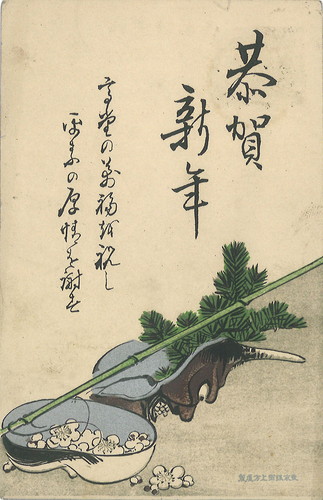 恭賀
新年
高堂の萬福を祝し
平素の厚情を謝す